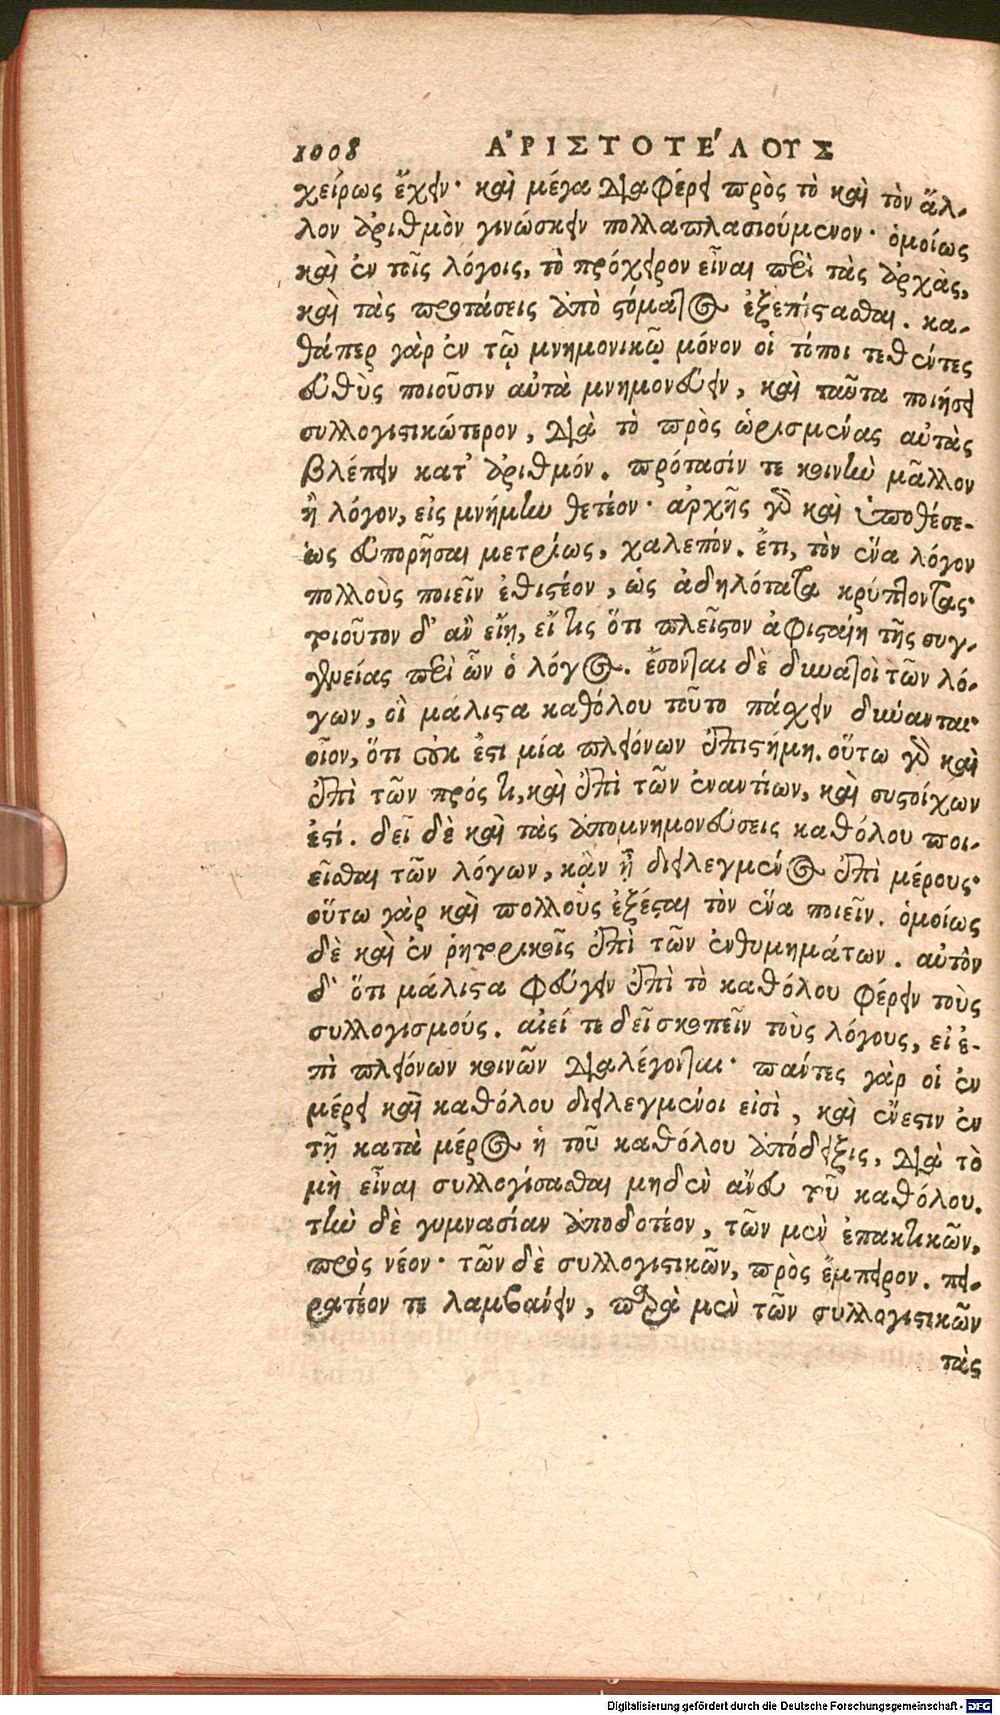 1008 ἈΡΙΣΤΟΤΈΛΟΥΣ
χείρως ἔχειν· καὶ μέγα διαφέρει πρὸς τὸ καὶ τὸν ἄλ-
λον ἀριθμὸν γινώσκειν πολλαπλασιούμενον· ὁμοίως
καὶ ἐν τοῖς λόγοις, τὸ πρόχειρον εἶναι περὶ τὰς ἀρχὰς,
καὶ τὰς προτάσεις ἀπὸ στόματος ἐξεπίστασθαι. κα-
θάπερ γὰρ ἐν τῷ μνημονικῷ μόνον οἱ τόποι τεθέντες
εὐθὺς ποιοῦσιν αὐτὰ μνημονεύειν, καὶ ταῦτα ποιήσει
συλλογιστικώτερον, διὰ τὸ πρὸς ὡρισμένας αὐτὰς
βλέπειν κατ' ἀριθμόν. πρότασίν τε κοινὴν μᾶλλον
ἢ λόγον, εἰς μνήμην θετέον· ἀρχῆς γὰρ καὶ ὑποθέσε-
ως εὐπορῆσαι μετρίως, χαλεπόν. ἔτι, τὸν ἕνα λόγον
πολλοὺς ποιεῖν ἐθιστέον, ὡς ἀδηλότατα κρύπτοντας·
τοιοῦτον δ' ἂν εἴη, εἴ τις ὅτι πλεῖστον ἀφισταίη τῆς συγ-
γενείας περὶ ὧν ὁ λόγος. ἔσονται δὲ δυνατοὶ τῶν λό-
γων, οἳ μάλιστα καθόλου τοῦτο πάσχειν δύνανται·
οἷον, ὅτι οὐκ ἔστι μία πλειόνων ἐπιστήμη. οὕτω γὰρ καὶ
ἐπὶ τῶν πρός τι, καὶ ἐπὶ τῶν ἐναντίων, καὶ συστοίχων
ἐστί. δεῖ δὲ καὶ τὰς ἀπομνημονεύσεις καθόλου ποι-
εῖσθαι τῶν λόγων, κἂν ᾖ διειλεγμένος ἐπὶ μέρους·
οὕτω γὰρ καὶ πολλοὺς ἐξέσται τὸν ἕνα ποιεῖν. ὁμοίως
δὲ καὶ ἐν ῥητορικοῖς ἐπὶ τῶν ἐνθυμημάτων. αὐτὸν
δ' ὅτι μάλιστα φεύγειν ἐπὶ τὸ καθόλου φέρειν τοὺς
συλλογισμούς. αἰεί τε δεῖ σκοπεῖν τοὺς λόγους, εἰ ἐ-
πὶ πλειόνων κοινῶν διαλέγονται· πάντες γὰρ οἱ ἐν
μέρει καὶ καθόλου διειλεγμένοι εἰσὶ, καὶ ἔνεστιν ἐν
τῇ κατὰ μέρος ἡ τοῦ καθόλου ἀπόδειξις, διὰ τὸ
μὴ εἶναι συλλογίσασθαι μηδὲν ἄνευ τοῦ καθόλου.
τὴν δὲ γυμνασίαν ἀποδοτέον, τῶν μὲν ἐπακτικῶν,
πρὸς νέον· τῶν δὲ συλλογιστικῶν, πρὸς ἔμπειρον. πει-
ρατέον τε λαμβάνειν, παρὰ μὲν τῶν συλλογιστικῶν
τὰς
Digitalisierung gefördert durch die Deutsche Forschungsgemeinschaft - DFG